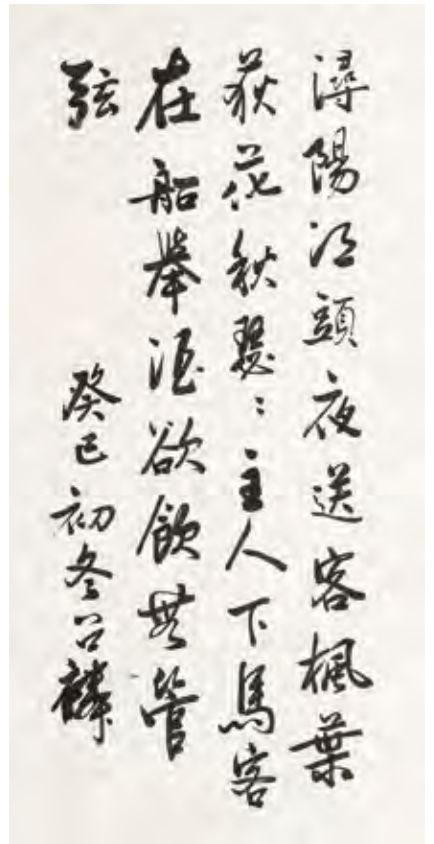 潯陽江頭夜送客楓葉
荻花秋瑟:主人下馬客
在船舉酒欲飲無管
弦
癸巳初冬召麟